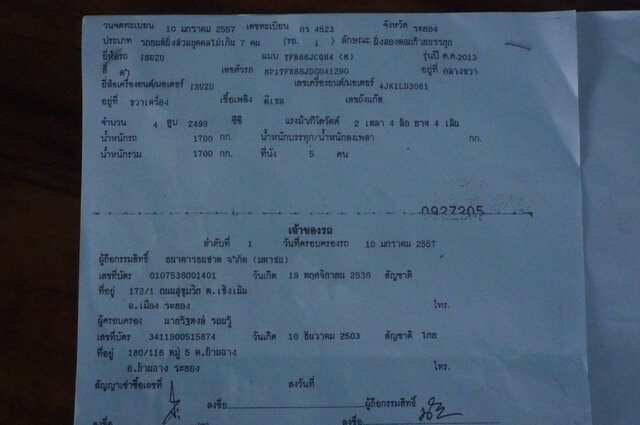 วันจดทะเบียน 10 มกราคม 2557 เลขทะเบียน กร 4523 จังหวัด ระยอง
ประเภท รถยนต์นั่งส่วนบุคคลไม่เกิน 7 คน (รย. 1 ) ลักษณะ นั่งสองตอนท้ายบรรทุก
ยี่ห้อรถ ISUZU แบบ TFR86JCQH4 (M) รุ่นปี ค.ศ.2013
สี ดำ เลขตัวรถ MP1TFR86JDG041290 อยู่ที่ กลางขวา
ยี่ห้อเครื่องยนต์/มอเตอร์ ISUZU เลขเครื่องยนต์/มอเตอร์ 4JK1LD3081
อยู่ที่ ขวาเครื่อง เชื้อเพลิง ดีเซล เลขถังแก๊ส
จำนวน 4 สูบ 2499 ซีซี แรงม้า/กิโลวัตต์ 2 เพลา 4 ล้อ ยาง 4 เส้น
น้ำหนักรถ 1700 กก. น้ำหนักบรรทุก/น้ำหนักลงเพลา กก.
น้ำหนักรวม 1700 กก. ที่นั่ง 5 คน
0927205
เจ้าของรถ
ลำดับที่ 1 วันที่ครอบครองรถ 10 มกราคม 2557
ผู้ถือกรรมสิทธิ์ ธนาคารธนชาต จำกัด (มหาชน)
เลขที่บัตร 0107536001401 วันเกิด 19 พฤศจิกายน 2536 สัญชาติ
ที่อยู่ 172/1 ถนนสุขุมวิท ต.เชิงเนิน
อ.เมือง ระยอง โทร.
ผู้ครอบครอง นายรัฐพงษ์ รอยรู้
เลขที่บัตร 3411900515874 วันเกิด 10 ธันวาคม 2503 สัญชาติ ไทย
ที่อยู่ 180/116 หมู่ 5 ต.บ้านฉาง
อ.บ้านฉาง ระยอง โทร.
สัญญาเช่าซื้อเลขที่ ลงวันที่
ลงชื่อ ผู้ถือกรรมสิทธิ์
ลงชื่อ ลงชื่อ